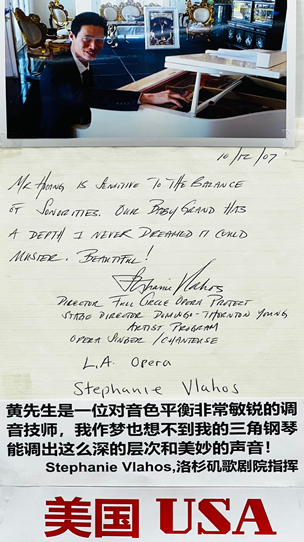 10/12/07
MR HUANG IS SENSITIVE TO THE BALANCE
OF SONORITIES. OUR BABY GRAND HAS
A DEPTH I NEVER DREAMED IT COULD
MUSTER. BEAUTIFUL!
Stephanie Vlahos
DIRECTOR FULL CIRCLE OPERA PROJECT
STAGE DIRECTOR DOMINGO-THORNTON YOUNG
ARTIST PROGRAM
OPERA SINGER/CHANTEUSE
L.A. OPERA
Stephanie Vlahos
黄先生是一位对音色平衡非常敏锐的调
音技师，我作梦也想不到我的三角钢琴
能调出这么深的层次和美妙的声音！
Stephanie Vlahos,洛杉矶歌剧院指挥
美国 USA